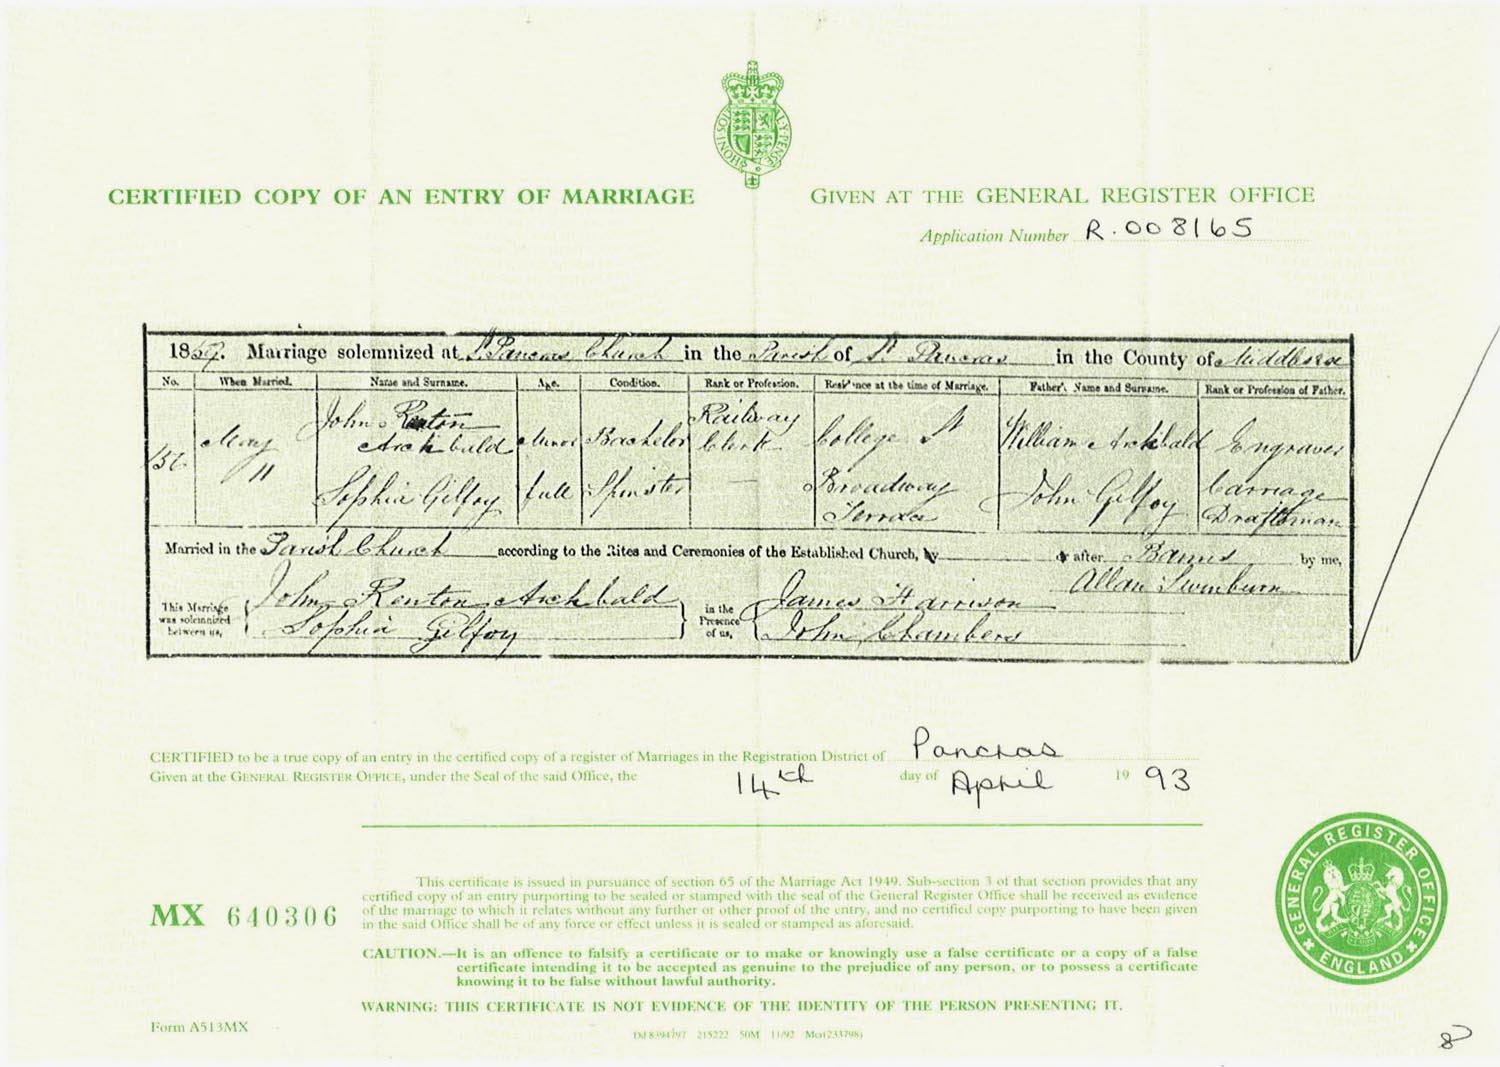 HONI SOIT QUI MAL Y PENSE
CERTIFIED COPY OF AN ENTRY OF MARRIAGE
GIVEN AT THE GENERAL REGISTER OFFICE
Application Number R.008165
Marriage solemnized at St Pancras Church in the Parish of St Pancras in the County of Middlesex
No. When Married. Name and Surname. Age. Condition. Rank or Profession. Residence at the time of Marriage. Father's Name and Surname. Rank or Profession of Father.
May 11 John Renton Archibald Minor Bachelor Railway Clerk College St William Archibald Engraver
Sophia Gilfoy full Spinster — Broadway Terrace John Gilfoy Carriage Draftsman
Married in the Parish Church according to the Rites and Ceremonies of the Established Church, by or after Banns by me,
Allan Swinburn
This Marriage was solemnized between us, John Renton Archibald
Sophia Gilfoy
in the Presence of us, James Harrison
John Chambers
CERTIFIED to be a true copy of an entry in the certified copy of a register of Marriages in the Registration District of Pancras
Given at the GENERAL REGISTER OFFICE, under the Seal of the said Office, the 14th day of April 1993
MX 640306
This certificate is issued in pursuance of section 65 of the Marriage Act 1949. Sub-section 3 of that section provides that any
certified copy of an entry purporting to be sealed or stamped with the seal of the General Register Office shall be received as evidence
of the marriage to which it relates without any further or other proof of the entry, and no certified copy purporting to have been given
in the said Office shall be of any force or effect unless it is sealed or stamped as aforesaid.
CAUTION.—It is an offence to falsify a certificate or to make or knowingly use a false certificate or a copy of a false
certificate intending it to be accepted as genuine to the prejudice of any person, or to possess a certificate
knowing it to be false without lawful authority.
WARNING: THIS CERTIFICATE IS NOT EVIDENCE OF THE IDENTITY OF THE PERSON PRESENTING IT.
GENERAL REGISTER OFFICE
ENGLAND
Form A513MX
Dd 8394797 215222 50M 11/92 Mcr(233798)
8